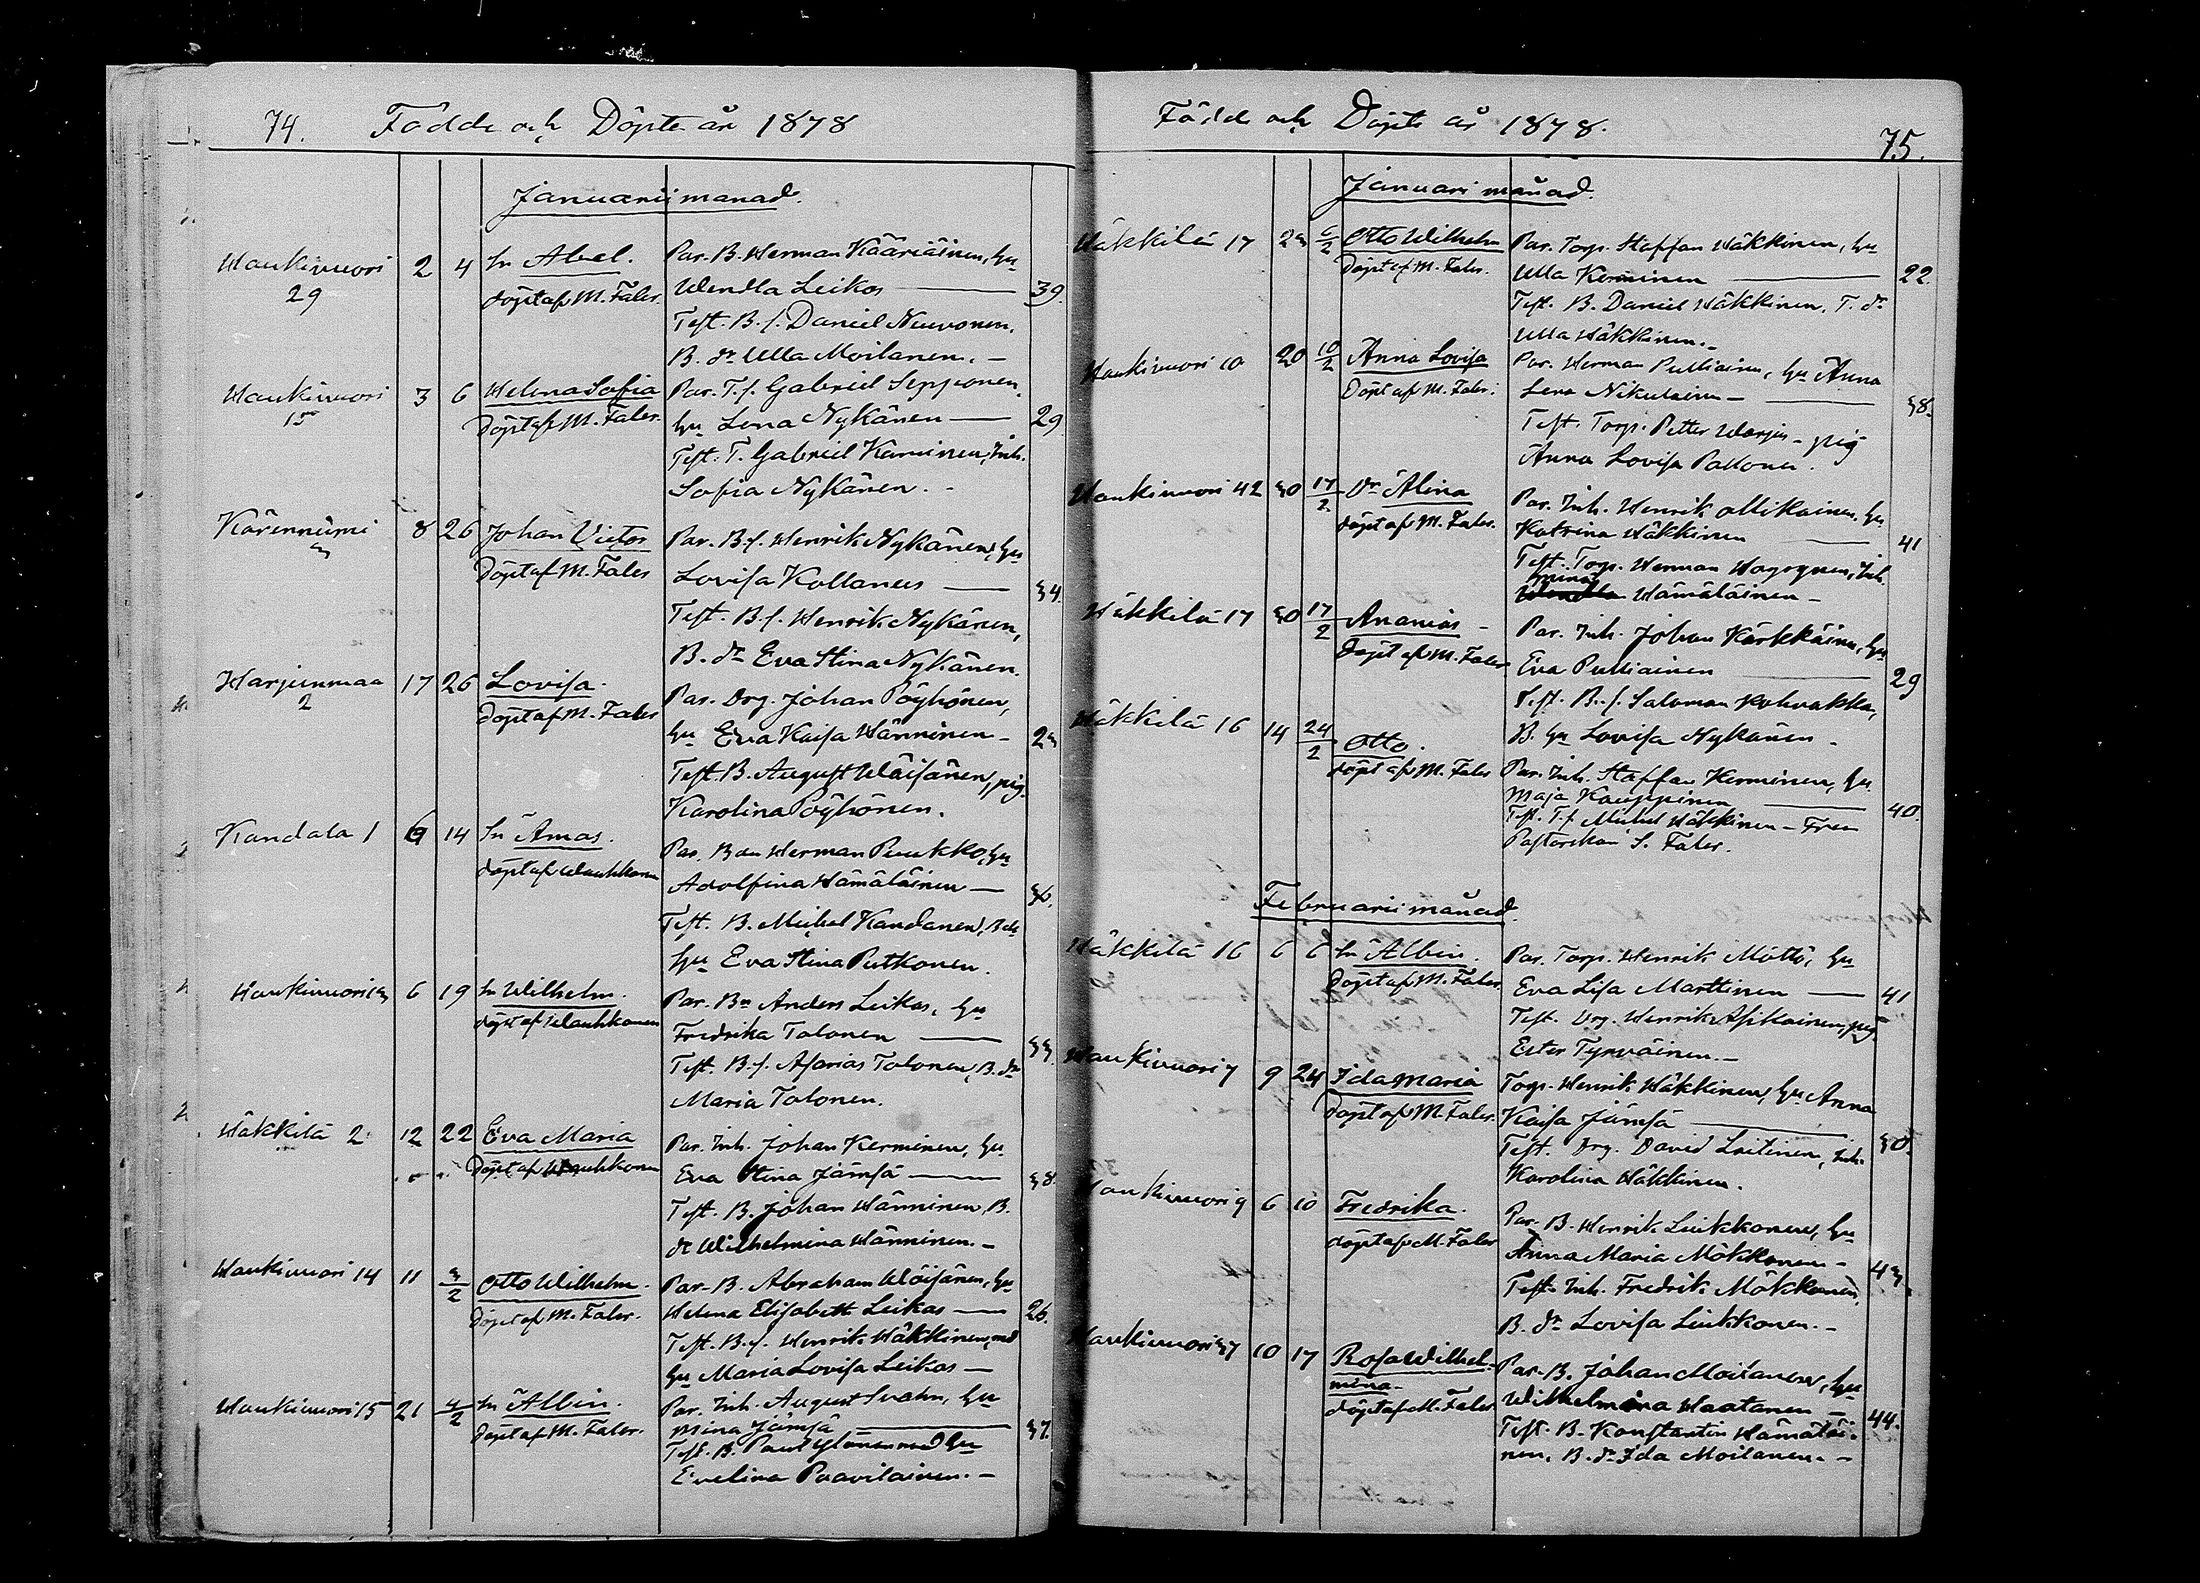 74. Födde och Döpte år 1878
Januarii månad.
Haukivuori 29 2 4 Sn Abel. Par. B. Herman Kääriäinen, hu
döpt af M. Faler. Wendla Leikos — 39.
Test. B. s. Daniel Nuuvonen.
B. dr Ulla Moilanen. —
Haukivuori 15 3 6 Helena Sofia Par. T. s. Gabriel Sepponen
döpt af M. Faler. hu Lena Nykänen — 29
Test. T. Gabriel Kaminen, Inh.
Sofia Nykänen. -
Kärenniemi 3 8 26 Johan Victor Par. B. s. Henrik Nykänen, hu
döpt af M. Faler Lovisa Kollanus — 34.
Test. B. s. Henrik Nykänen,
B. dr Eva Stina Nykänen.
Harjunmaa 2 17 26 Lovisa. Par. Drg. Johan Pöyhönen,
döpt af M. Faler hu Eva Kaisa Hänninen - 23
Test. B. August Wäisänen, pig.
Karolina Pöyhönen.
Kandala 1 6 14 Sn Amas. Par. Bon Herman Puukko, hu
döpt af Wauhkonen Adolfina Hämäläinen — 36.
Test. B. Michel Kandanen, Bds
hu Eva Stina Putkonen.
Haukivuori 3 6 19 Sn Wilhelm. Par. Bn Anders Leikas, hu
döpt af Wauhkonen Fredrika Tolonen — 33.
Test. B. s. Asarias Tolonen, B. dr
Maria Tolonen.
Häkkilä 2 12 22 Eva Maria Par. Inh. Johan Kerminen, hu
döpt af Wauhkonen Eva Stina Jämsä — 38.
Test. B. Johan Hänninen, B.
dr Wilhelmina Hänninen. —
Haukivuori 14 11 3/2 Otto Wilhelm. Par. B. Abraham Wäisänen, hu
döpt af M. Faler. Helena Elisabeth Leikas — 26.
Test. B. s. Henrik Häkkinen, med
hu Maria Lovisa Leikas —
Haukivuori 15 21 4/2 Sn Albin. Par. Inh. August Svahn, hu
döpt af M. Faler. Mina Jämsä — 37.
Test. B. Paul Ylönen med hu
Evelina Paavilainen. —
Födde och Döpte år 1878. 75.
Januari månad.
Häkkilä 17 23 6/2 Otto Wilhelm Par. Torp. Staffan Häkkinen, hu
döpt af M. Faler. Ulla Kerminen — 22.
Test. B. Daniel Häkkinen, T. dr
Ulla Häkkinen. -
Haukivuori 10 20 10/2 Anna Lovisa Par. Herman Pulliainen, hu Anna
döpt af M. Faler. Lena Nikulainen — 38.
Test. Torp. Petter Warjus - pig
Anna Lovisa Pallonen.
Haukivuori 42 30 17/2 Dr Alina Par. Inh. Henrik Ollikainen, hu
döpt af M. Faler. Katrina Häkkinen — 41
Test. Torp. Herman Hagognen, Inh.
Mina Hämäläinen -
Häkkilä 17 30 17/2 Ananias - Par. Inh. Johan Kärkkäinen, hu
döpt af M. Faler Eva Pulliainen — 29
Test. B. s. Saloman Kohvakka,
B. hu Lovisa Nykänen -
Häkkilä 16 14 24/2 Otto. Par. Inh. Staffan Kerminen, hu
döpt af M. Faler Maja Kauppinen — 40.
Test. T. s. Michel Häkkinen - Fru
Pastorskan S. Faler.
Februarii månad.
Häkkilä 16 6 6 Sn Albin. Par. Torp. Henrik Möttö, hu
döpt af M. Faler. Eva Lisa Marttinen — 41
Test. Drg. Henrik Asikainen, pig.
Ester Tyrväinen. —
Haukivuori 7 9 24 Ida Maria Torp. Henrik Häkkinen, hu Anna
döpt af M. Faler. Kaisa Jämsä — 30.
Test. Drg. David Laitinen, Inh.
Karolina Häkkinen.
Haukivuori 9 6 10 Fredrika. Par. B. Henrik Liukkonen, hu
döpt af M. Faler Anna Maria Mökkonen - 43.
Test. Inh. Fredrik Mökkönen,
B. dr Lovisa Liukkonen. -
Haukivuori 37 10 17 Rosa Wilhel- Par. B. Johan Moilanen, hu
mina. Wilhelmina Haatanen — 44.
döpt af M. Faler Test. B. Konstantin Hämäläi-
nen, B. dr Ida Moilanen. —